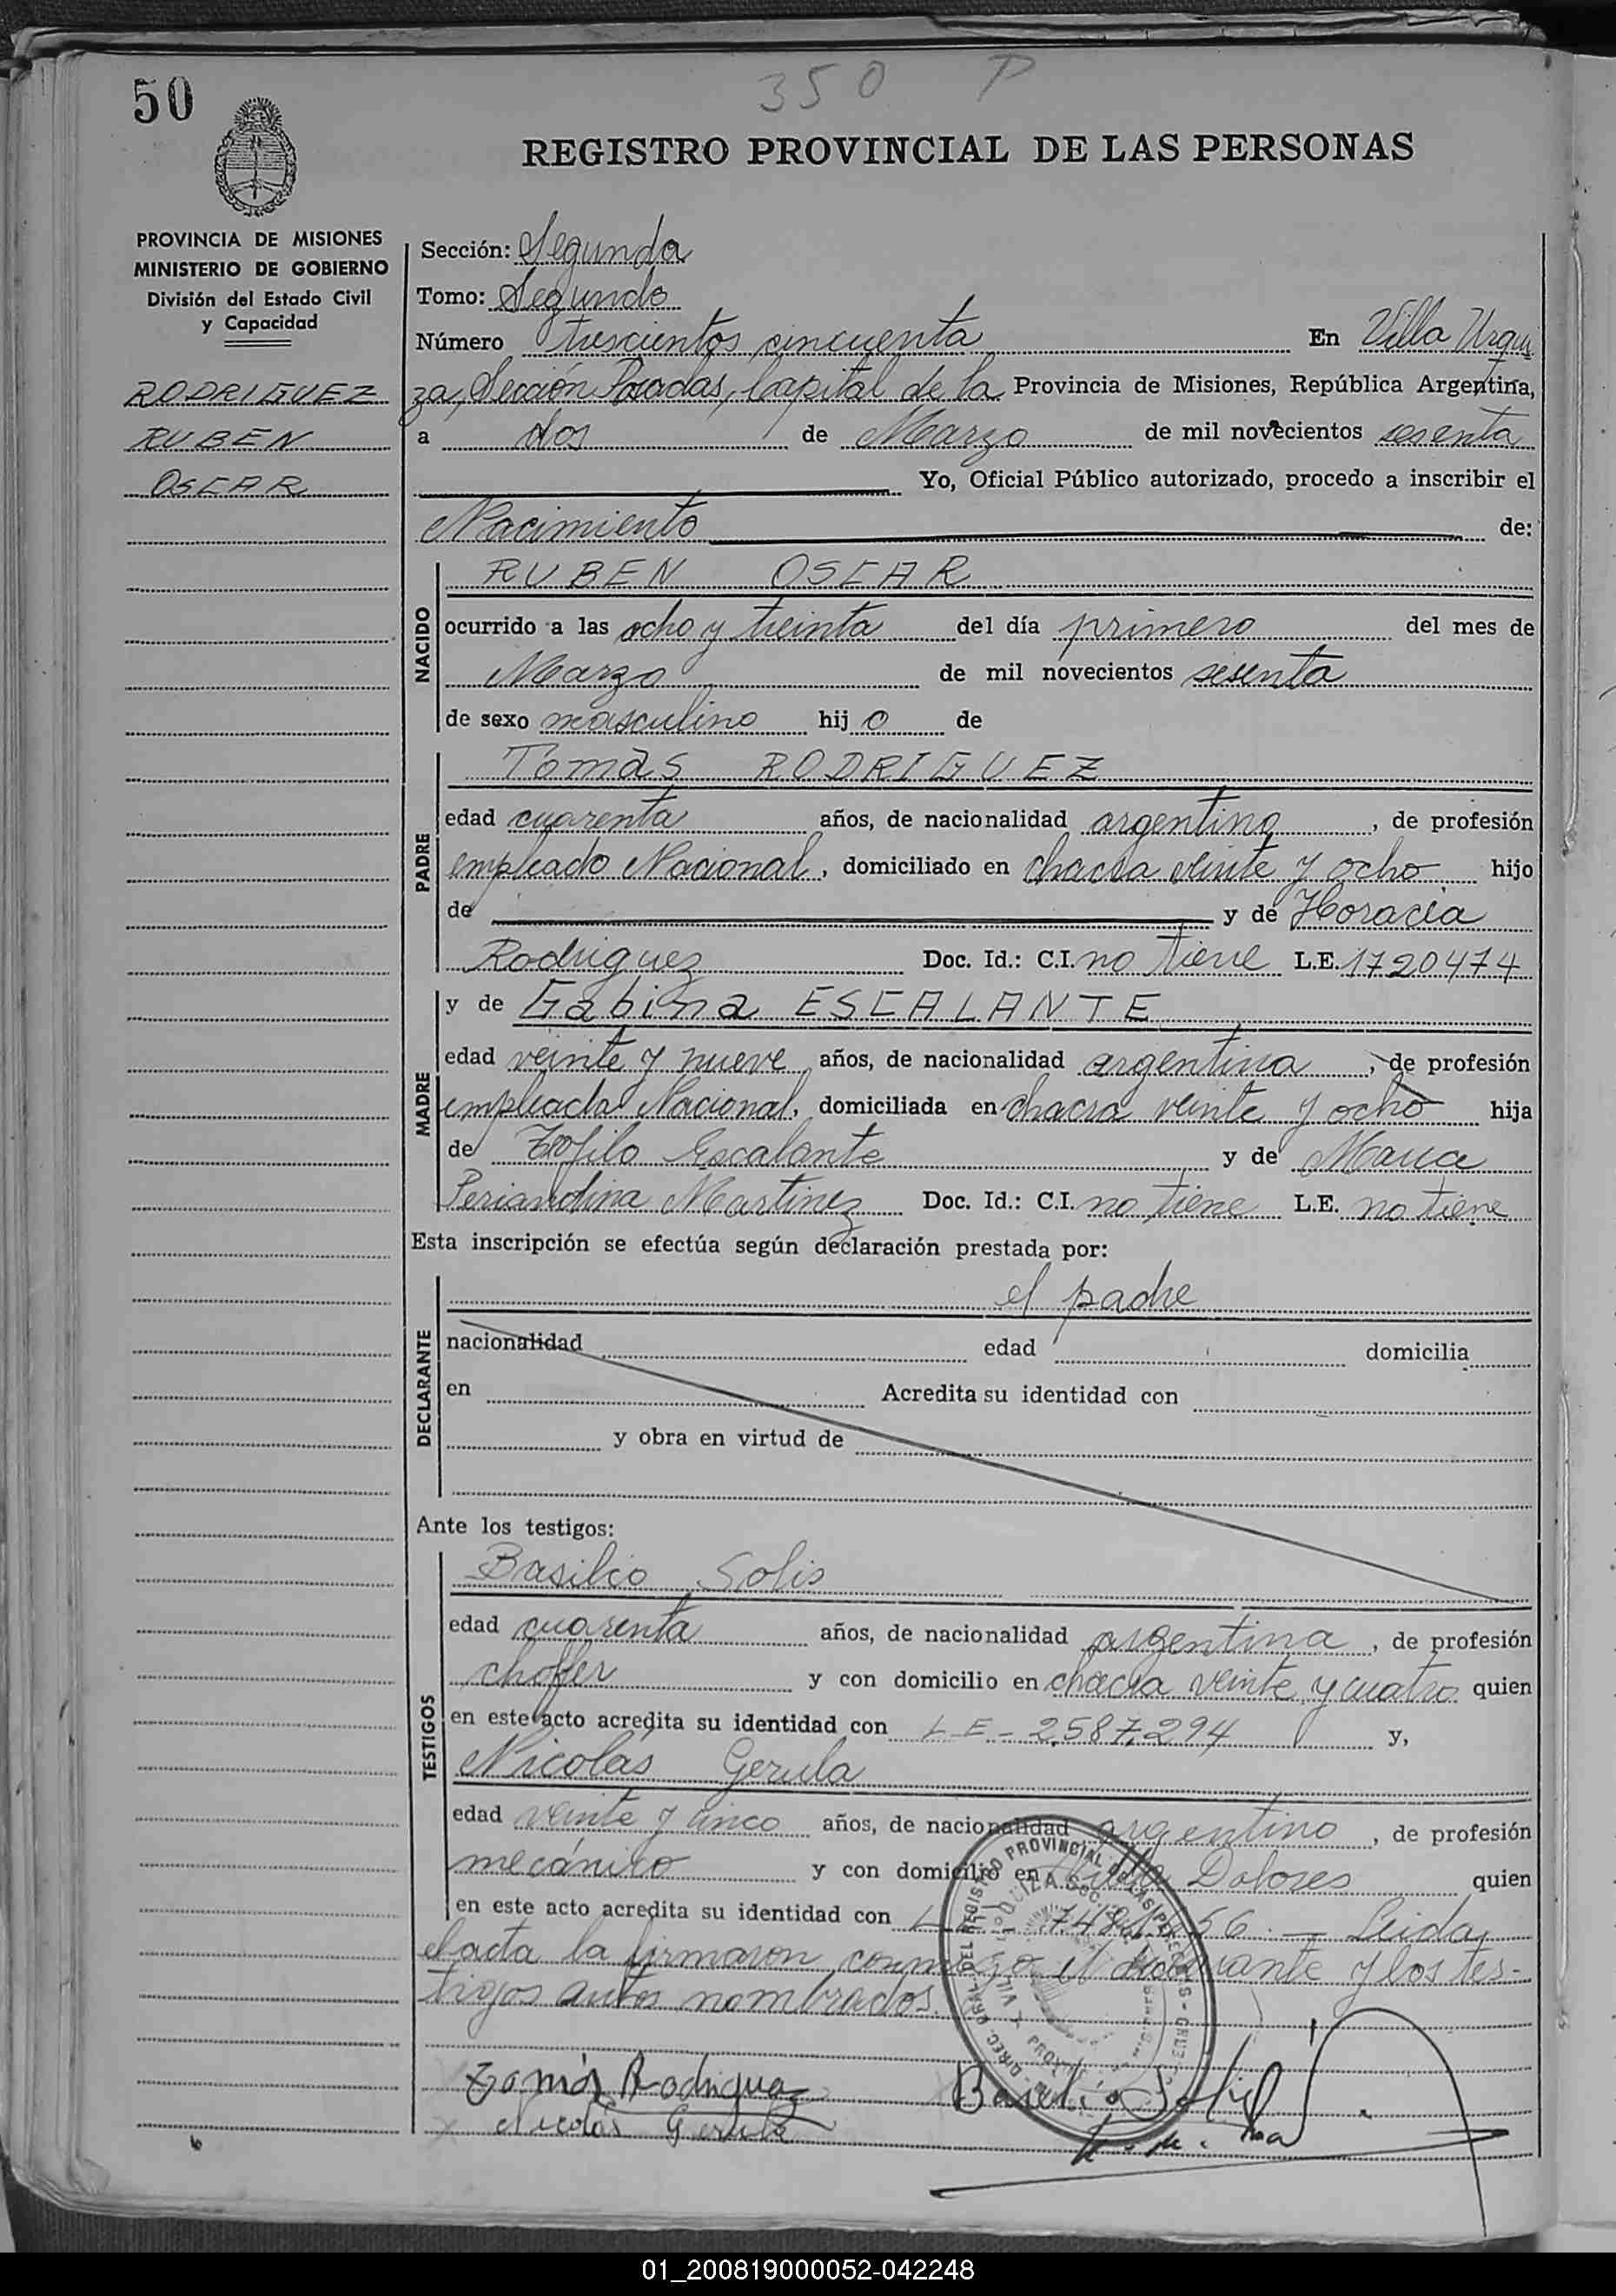 50
350 P
REGISTRO PROVINCIAL DE LAS PERSONAS
PROVINCIA DE MISIONES
MINISTERIO DE GOBIERNO
División del Estado Civil
y Capacidad
RODRIGUEZ
RUBEN
OSCAR
Sección: Segunda
Tomo: Segundo
Número trescientos cincuenta En Villa Urqui
za, Sección Posadas, Capital de la Provincia de Misiones, República Argentina,
a dos de Marzo de mil novecientos sesenta
Yo, Oficial Público autorizado, procedo a inscribir el
Nacimiento de:
NACIDO
RUBEN OSCAR
ocurrido a las ocho y treinta del día primero del mes de
Marzo de mil novecientos sesenta
de sexo masculino hijo de
PADRE
Tomás RODRIGUEZ
edad cuarenta años, de nacionalidad argentino, de profesión
empleado Nacional, domiciliado en chacra veinte y ocho hijo
de y de Horacia
Rodriguez Doc. Id.: C.I. no tiene L.E. 1720474
MADRE
y de Gabina ESCALANTE
edad veinte y nueve años, de nacionalidad argentina, de profesión
empleada Nacional, domiciliada en chacra veinte y ocho hija
de Teofilo Escalante y de Maria
Periandina Martinez Doc. Id.: C.I. no tiene L.E. no tiene
Esta inscripción se efectúa según declaración prestada por:
DECLARANTE
el padre
nacionalidad edad domicilia
en Acredita su identidad con
y obra en virtud de
Ante los testigos:
TESTIGOS
Basilio Solis
edad cuarenta años, de nacionalidad argentina, de profesión
choffer y con domicilio en chacra veinte y cuatro quien
en este acto acredita su identidad con L E - 2.587.294 y,
Nicolás Gerula
edad veinte y cinco años, de nacionalidad argentino, de profesión
mecánico y con domicilio en Villa Dolores quien
en este acto acredita su identidad con L 56. — Leida
el acta la firmaron conmigo el declarante y los tes-
tigos antes nombrados.
Tomás Rodriguez Basilio Solis
Nicolás Gerula
01_200819000052-042248